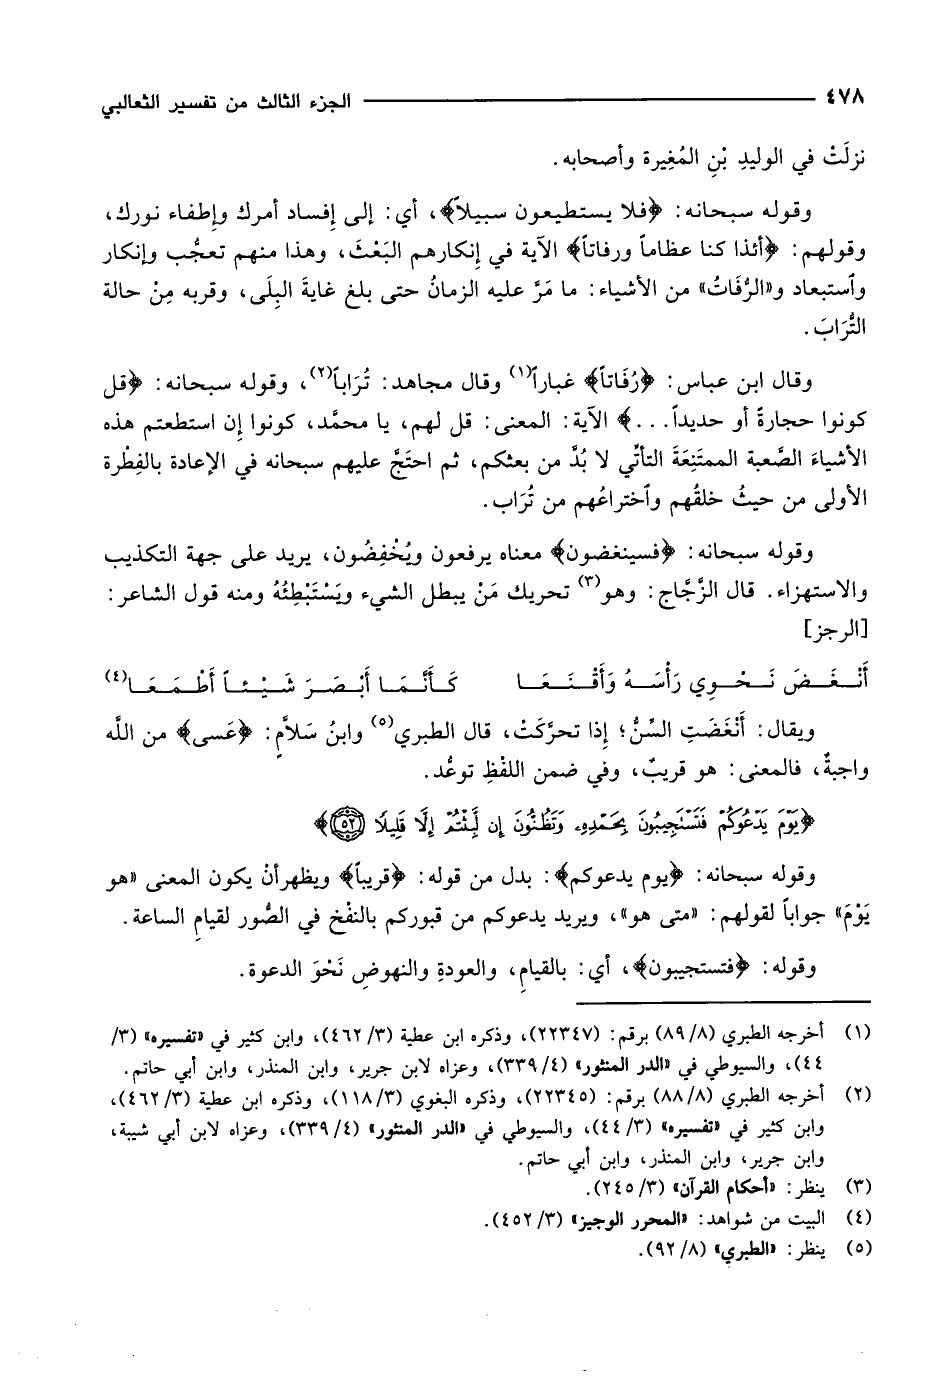 ٤٧٨ الجزء الثالث من تفسير الثعالبي
نزلَتْ في الوليدِ بْنِ المُغِيرة وأصحابه.
وقوله سبحانه: ﴿فلا يستطيعون سبيلاً﴾، أي: إلى إِفساد أمرك وإِطفاء نورك،
وقولهم: ﴿أئذا كنا عظاماً ورفاتاً﴾ الآية في إِنكارهم البَعْثَ، وهذا منهم تعجُّب وإنكار
وٱستبعاد و«الرُّفَاتُ» من الأشياء: ما مَرَّ عليه الزمانُ حتى بلغ غايةَ البِلَى، وقربه مِنْ حالة
التُّرَابَ.
وقال ابن عباس: ﴿رُفَاتاً﴾ غباراً(١) وقال مجاهد: تُرَاباً(٢)، وقوله سبحانه: ﴿قل
كونوا حجارةً أو حديداً...﴾ الآية: المعنى: قل لهم، يا محمَّد، كونوا إِن استطعتم هذه
الأشياءَ الصَّعبة الممتَنِعَةَ التأتِّي لا بُدَّ من بعثكم، ثم احتَجَّ عليهم سبحانه في الإعادة بالفِطْرة
الأولى من حيثُ خلقُهم وٱختراعُهم من تُرَاب.
وقوله سبحانه: ﴿فسينغضون﴾ معناه يرفعون ويُخْفِضُون، يريد على جهة التكذيب
والاستهزاء. قال الزَّجَّاج: وهو(٣) تحريك مَنْ يبطل الشيء ويَسْتَبْطِئُهُ ومنه قول الشاعر:
[الرجز]
أَنْغَضَ نَحْوِي رَأْسَهُ وَأَقْنَعَا كَأَنَّمَا أَبْصَرَ شَيْئاً أَطْمَعَا(٤)
ويقال: أَنْغَضَتِ السِّنُّ؛ إِذا تحرَّكَتْ، قال الطبري(٥) وابنُ سَلاَّمٍ: ﴿عَسى﴾ من اللَّه
واجبةٌ، فالمعنى: هو قريبٌ، وفي ضمن اللفْظِ توعُّد.
﴿يَوْمَ يَدْعُوكُمْ فَتَسْتَجِيبُونَ بِحَمْدِهِۦ وَتَظُنُّونَ إِن لَّبِثْتُمْ إِلَّا قَلِيلًا ۝٥٢﴾
وقوله سبحانه: ﴿يوم يدعوكم﴾: بدل من قوله: ﴿قريباً﴾ ويظهرأنْ يكون المعنى «هو
يَوْمَ» جواباً لقولهم: «متى هو»، ويريد يدعوكم من قبوركم بالنفْخ في الصُّور لقيامِ الساعة.
وقوله: ﴿فتستجيبون﴾، أي: بالقيامِ، والعودةِ والنهوضِ نَحْوَ الدعوة.
(١) أخرجه الطبري (٨/ ٨٩) برقم: (٢٢٣٤٧)، وذكره ابن عطية (٣/ ٤٦٢)، وابن كثير في «تفسيره» (٣/
٤٤)، والسيوطي في «الدر المنثور» (٤/ ٣٣٩)، وعزاه لابن جرير، وابن المنذر، وابن أبي حاتم.
(٢) أخرجه الطبري (٨/ ٨٨) برقم: (٢٢٣٤٥)، وذكره البغوي (٣/ ١١٨)، وذكره ابن عطية (٣/ ٤٦٢)،
وابن كثير في «تفسيره» (٣/ ٤٤)، والسيوطي في «الدر المنثور» (٤/ ٣٣٩)، وعزاه لابن أبي شيبة،
وابن جرير، وابن المنذر، وابن أبي حاتم.
(٣) ينظر: «أحكام القرآن» (٣/ ٢٤٥).
(٤) البيت من شواهد: «المحرر الوجيز» (٣/ ٤٥٢).
(٥) ينظر: «الطبري» (٨/ ٩٢).